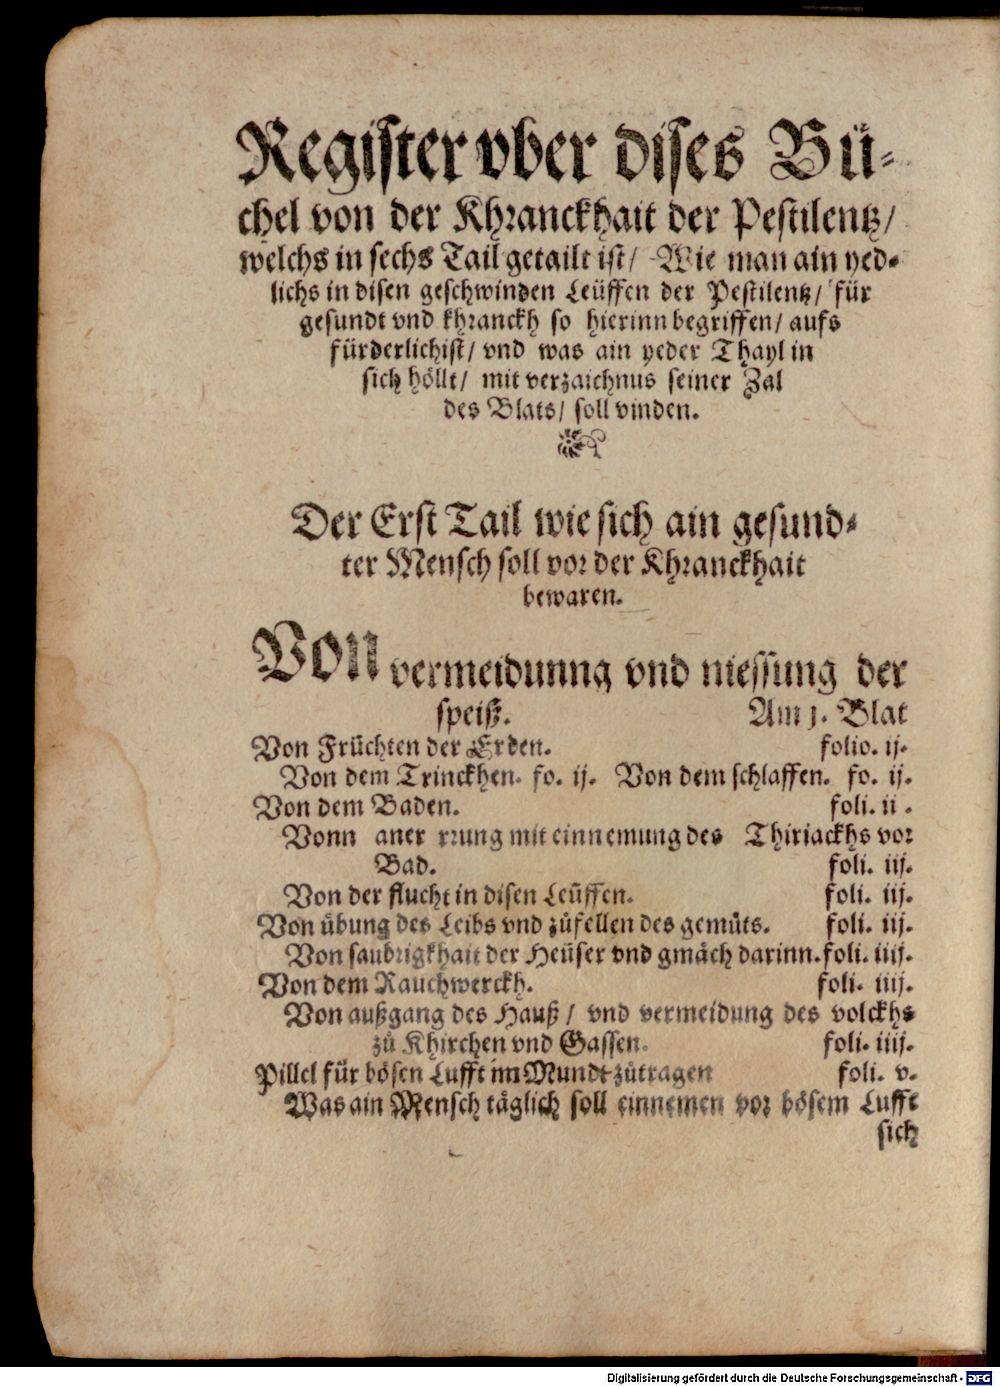 Register vber dises Bü-
chel von der Khranckhait der Pestilentz/
welchs in sechs Tail getailt ist/ Wie man ain yed-
lichs in disen geschwinden Leüffen der Pestilentz/ für
gesundt vnd khranckh so hierinn begriffen/ aufs
fürderlichist/ vnd was ain yeder Thayl in
sich höllt/ mit verzaichnus seiner Zal
des Blats/ soll vinden.
Der Erst Tail wie sich ain gesund-
ter Mensch soll vor der Khranckhait
bewaren.
VOn vermeidunng vnd niessung der
speiß. Am j. Blat
Von Früchten der Erden. folio. ij.
Von dem Trinckhen. fo. ij. Von dem schlaffen. fo. ij.
Von dem Baden. foli. ii.
Vonn aner mit einnemung des Thiriackhs vor
Bad. foli. iij.
Von der flucht in disen Leüffen. foli. iij.
Von übung des Leibs vnd zůfellen des gemüts. foli. iij.
Von saubrigkhait der Heüser vnd gmäch darinn. foli. iiij.
Von dem Rauchwerckh. foli. iiij.
Von außgang des Hauß/ vnd vermeidung des volckhs
zů Khirchen vnd Gassen. foli. iiij.
Pillel für bösen Lufft im Mundt zůtragen foli. v.
Was ain Mensch täglich soll einnemen vor bösem Lufft
sich
Digitalisierung gefördert durch die Deutsche Forschungsgemeinschaft - DFG